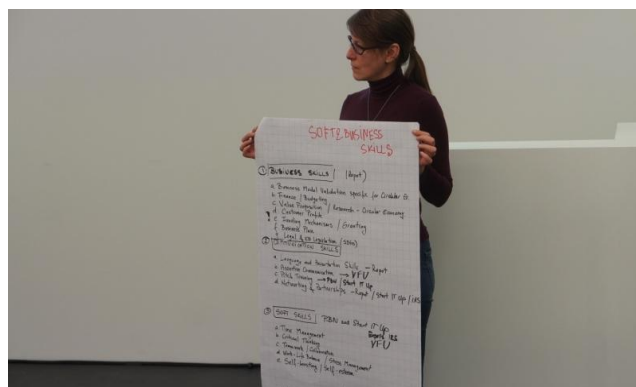 SOFT & BUSINESS
SKILLS
① BUSINESS SKILLS / (Report)
a. Business Model Validation specific for Circular E.
b. Finance / Budgeting
c. Value Proposition / Research - Circular Economy
d. Customer Profile
! e. Funding Mechanisms / Granting
f. Business Plan
g. Legal & Legislation
② SKILLS
a. Language and Presentation Skills - Report
b. Assertive Communication → VFU
c. Pitch Training → / Start IT Up
d. Networking & Partnerships - Report / Start IT Up / IRS
③ SOFT SKILLS / and Start IT Up
a. Time Management IRS
b. Critical Thinking VFU
c. Teamwork / Collaboration
d. Work-Life Balance / Stress Management
e. Self-branding / Self-esteem